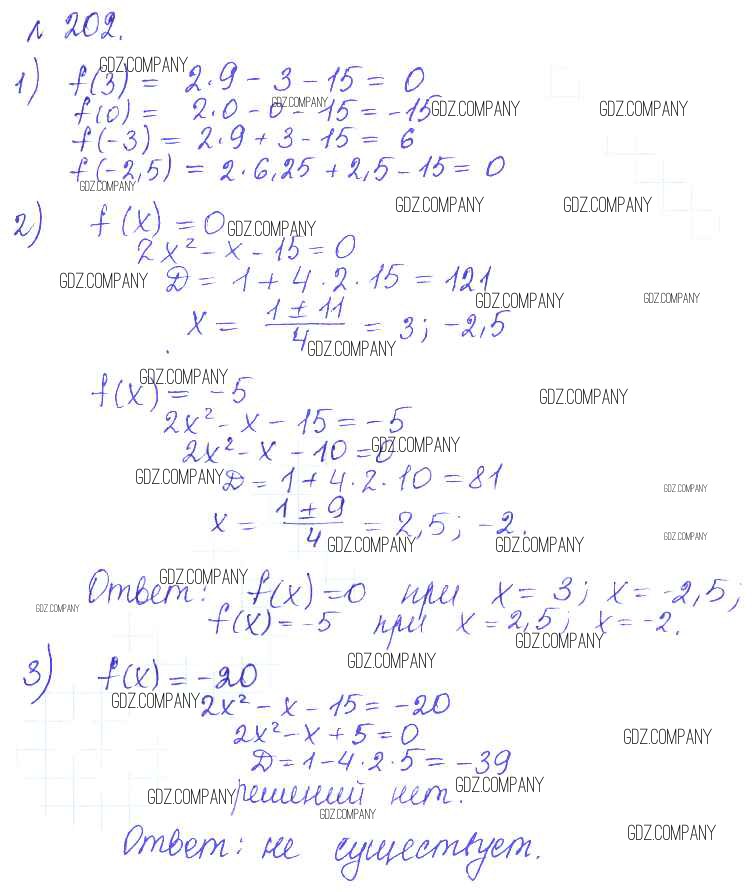 № 202.
GDZ.COMPANY
1) f(3) = 2·9 - 3 - 15 = 0
f(0) = 2·0 - 0 - 15 = -15 GDZ.COMPANY GDZ.COMPANY GDZ.COMPANY
f(-3) = 2·9 + 3 - 15 = 6
f(-2,5) = 2·6,25 + 2,5 - 15 = 0
GDZ.COMPANY
GDZ.COMPANY GDZ.COMPANY
2) f(x) = 0 GDZ.COMPANY
2x² - x - 15 = 0
GDZ.COMPANY Д = 1 + 4·2·15 = 121
GDZ.COMPANY GDZ.COMPANY
x = (1 ± 11)/4 = 3; -2,5
GDZ.COMPANY
GDZ.COMPANY
f(x) = -5 GDZ.COMPANY
2x² - x - 15 = -5
2x² - x - 10 = 0 GDZ.COMPANY
GDZ.COMPANY Д = 1 + 4·2·10 = 81
GDZ.COMPANY
x = (1 ± 9)/4 = 2,5; -2.
GDZ.COMPANY GDZ.COMPANY GDZ.COMPANY
GDZ.COMPANY
Ответ: f(x) = 0 при x = 3; x = -2,5;
GDZ.COMPANY
f(x) = -5 при x = 2,5; x = -2.
GDZ.COMPANY
GDZ.COMPANY
3) f(x) = -20
GDZ.COMPANY 2x² - x - 15 = -20
2x² - x + 5 = 0 GDZ.COMPANY
Д = 1 - 4·2·5 = -39
GDZ.COMPANY
GDZ.COMPANY решений нет.
GDZ.COMPANY
GDZ.COMPANY
Ответ: не существует.